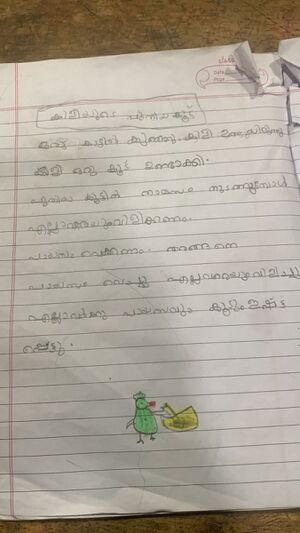 കിളിയുടെ പുതിയ കൂട്
ഒരു കാട്ടിൽ കുഞ്ഞു കിളി ഉണ്ടായിരുന്നു
കിളി ഒരു കൂട് ഉണ്ടാക്കി.
പുതിയ കൂട്ടിൽ താമസം തുടങ്ങുമ്പോൾ
എല്ലാവരെയും വിളിക്കണം.
പായസം വെക്കണം. അങ്ങനെ
പായസം വെച്ചു എല്ലാവരെയും വിളിച്ചു
എല്ലാവർക്കും പായസവും കൂടും ഇഷ്ട
പ്പെട്ടു.